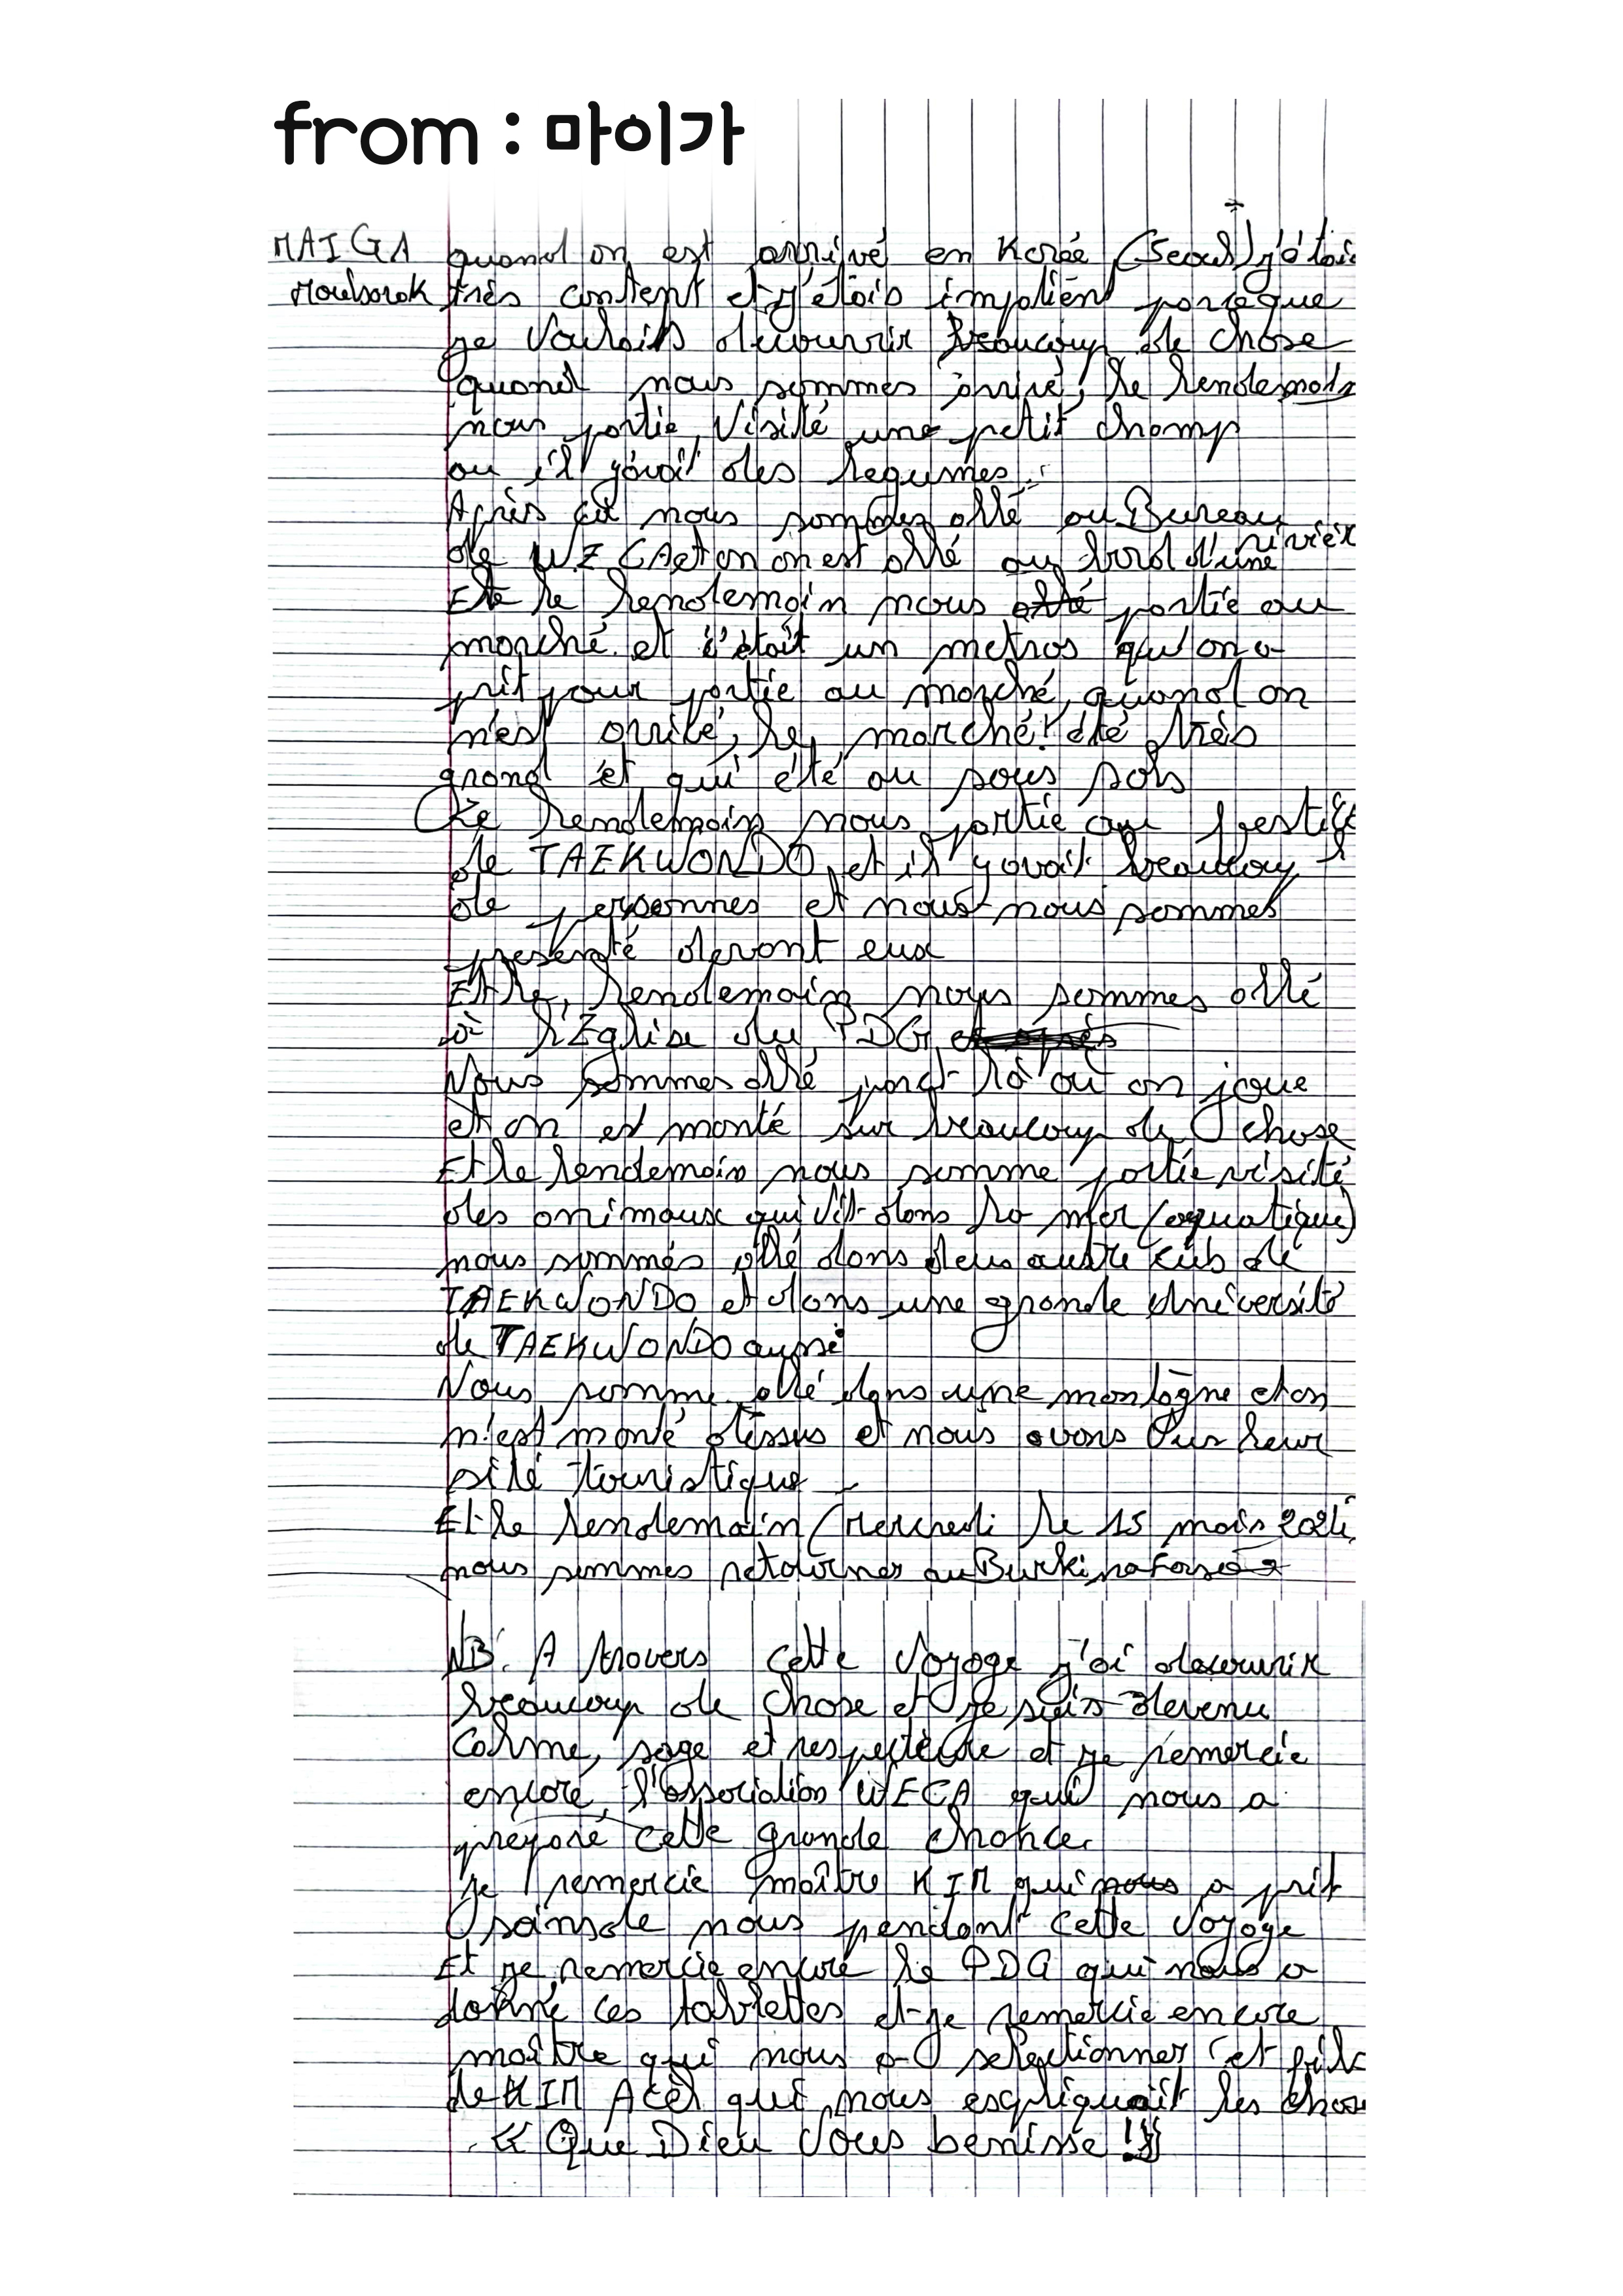 from : 마이가
MAIGA quand on est arrivé en Korée (Seoul) j'étais
Moubarak très content et j'étais impatient parceque
je voulais decouvrir beaucoup de chose
quand nous sommes arrivé, le lendemain
nous partie visité une petit champ
ou il yavait des legumes.
Après ça nous sommes allé au Bureau
de WECA et on on est allé au bord d'une rivièr
Et le lendemain nous allé partie au
marché et c'était un metros qu'on a
prit pour partie au marché, quand on
n'est arrivé, le marché été très
grand et qui été au sous sols
Le lendemain nous partie au
de TAEKWONDO et il yavait beaucoup
de personnes et nous nous sommes
presenté devant eux
Et le lendemain nous sommes allé
à l'Eglise du PDG
Nous sommes allé là où on joue
et on est monté sur beaucoup de chose
Et le lendemain nous somme partie visité
des animaux qui vit dans la mer (aquatique)
nous sommes allé dans deux autre cub de
TAEKWONDO et dans une grande Université
de TAEKWONDO aussi
Nous somme allé dans une montagne et on
n'est monté dessus et nous avons vus leur
sité touristique
Et le lendemain (Mercredi le 15 mais 2024
nous sommes retourner au Burkina Faso
NB: A travers cette voyage j'ai decouvrir
beaucoup de chose et je suis devenu
calme, sage et et je remercie
encore l'association WECA qui nous a
preparé cette grande chance.
je remercie maître KIM qui nous a prit
soins de nous pendant cette voyage
Et je remercie encore le PDG qui nous a
donné ces tablettes et je remercie encore
maître qui nous a selectionner et
de KIM qui nous expliquait les chose
« Que Dieu vous benisse !! »